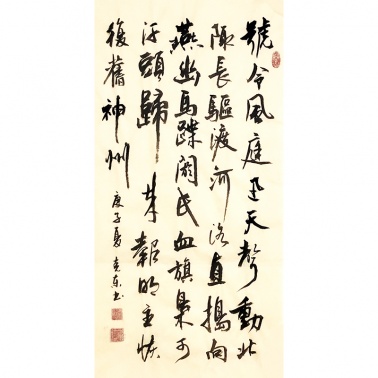 號令風庭迅天聲動北
陬長驅渡河洛直搗向
燕幽馬蹀閼氏血旗梟可
汗頭歸來報明主恢
復舊神州
庚子夏